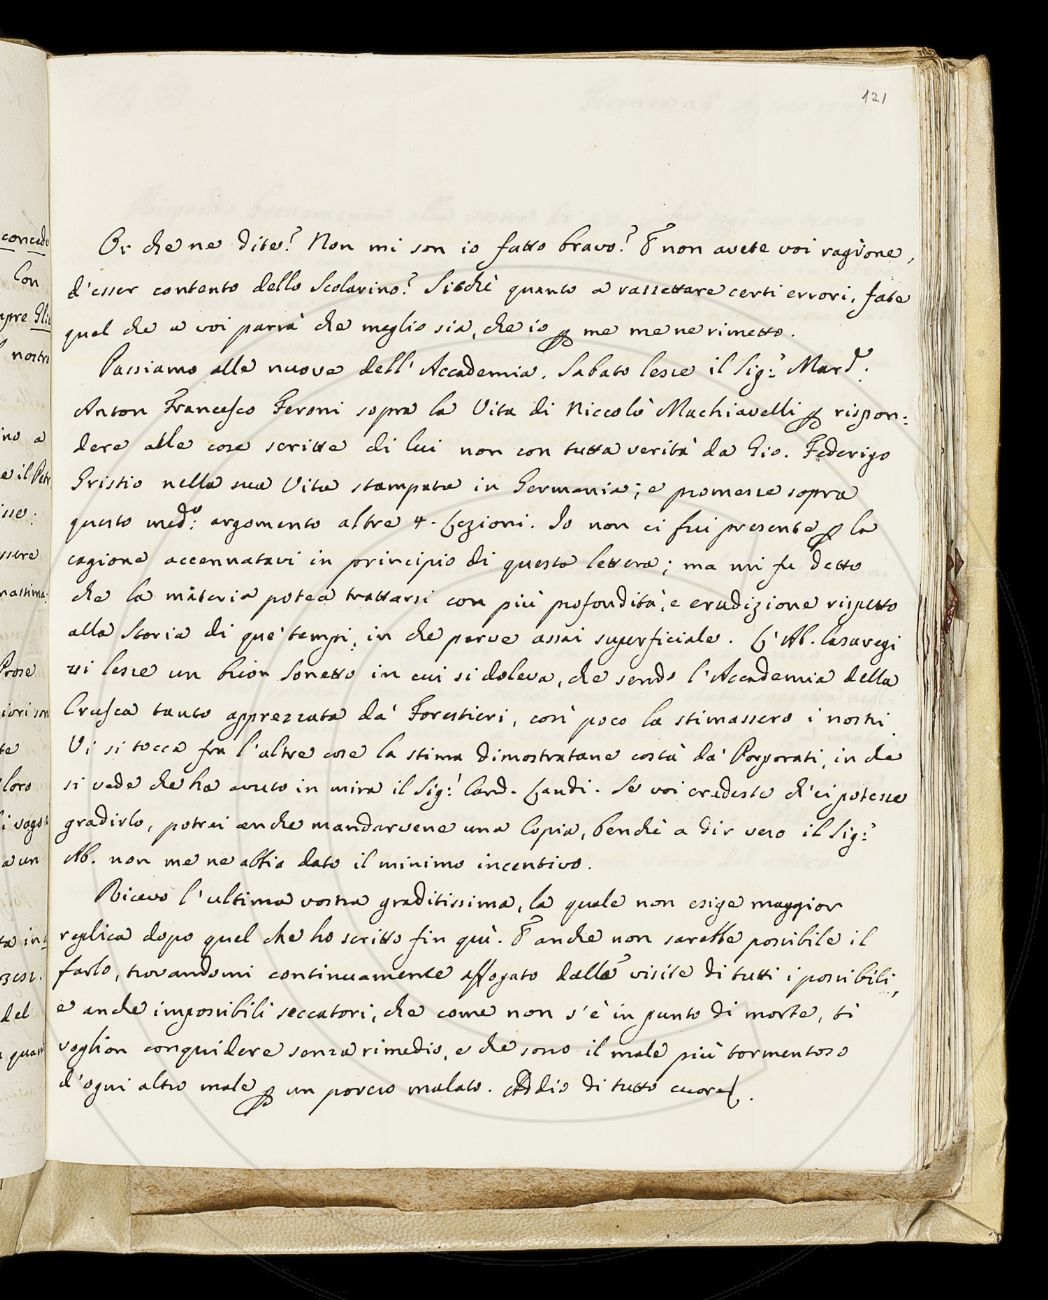 121
Or che ne dite? Non mi son io fatto bravo? E non avete voi ragione,
d'esser contento dello Scolarino? Sicchè quanto a rassettare certi errori, fate
quel che a voi parrà che meglio sia, che io p me me ne rimetto.
Passiamo alle nuove dell'Accademia. Sabato lesse il Sig.r Mar.
Anton Francesco Feroni sopra la Vita di Niccolò Machiavelli p rispon:
dere alle cose scritte di lui non con tutta verità da Gio. Federigo
Gristio nella sua Vita stampata in Germania; e promesse sopra
questo med.o argomento altre 4. Lezioni. Io non ci fui presente p la
cagione accennatavi in principio di questa lettera; ma mi fu detto
che la materia potea trattarsi con più profondità, e erudizione rispetto
alla Storia di que' tempi, in che parve assai superficiale. L'Ab. Casaregi
vi lesse un buon Sonetto in cui si doleva, che sendo l'Accademia della
Crusca tanto apprezzata da' Forestieri, così poco la stimassero i nostri
Vi si tocca fra l'altre cose la stima dimostratane costà da' Porporati, in che
si vede che ha avuto in mira il Sig.r Card. Landi. Se voi credeste ch'ei potesse
gradirlo, potrei anche mandarvene una Copia, benchè a dir vero il Sig.r
Ab. non me ne abbia dato il minimo incentivo.
Ricevo l'ultima vostra graditissima, la quale non esige maggior
replica dopo quel che ho scritto fin quì. E anche non sarebbe possibile il
farlo, trovandomi continuamente affogato dalle visite di tutti i possibili,
e anche impossibili seccatori, che come non s'è in punto di morte, ti
voglion conquidere senza rimedio, e che sono il male più tormentoso
d'ogni altro male p un povero malato. Addio di tutto cuore.